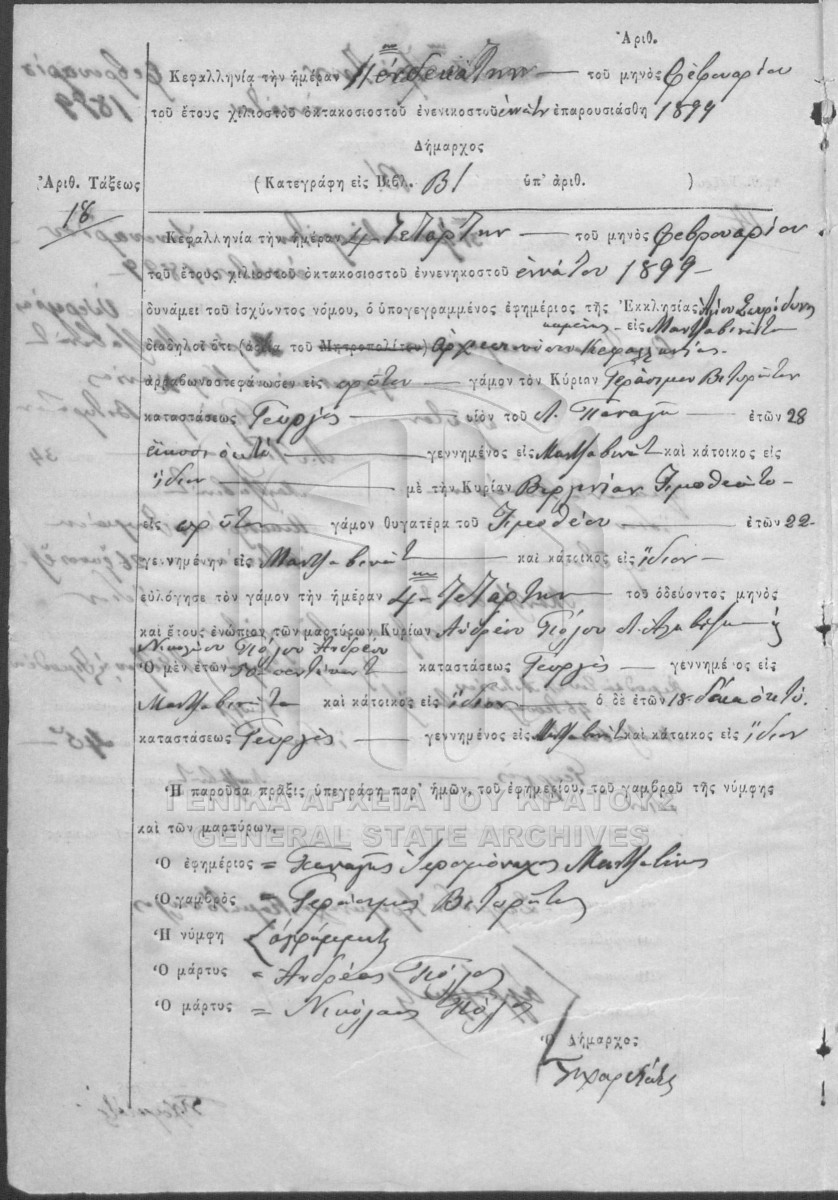 Ἀριθ.
Κεφαλληνία τὴν ἡμέραν Πένδεκάτην τοῦ μηνὸς Φεβρουαρίου
τοῦ ἔτους χιλιοστοῦ ὀκτακοσιοστοῦ ἐνενικοστοῦ ἐννάτου ἐπαρουσιάσθη 1899
Δήμαρχος
Ἀριθ. Τάξεως
(Κατεγράφη εἰς Βιβλ. Β/ ὑπ' ἀριθ. )
18
Κεφαλληνία τὴν ἡμέραν 4 - Τετάρτην - τοῦ μηνὸς Φεβρουαρίου
τοῦ ἔτους χιλιοστοῦ ὀκτακοσιοστοῦ ἐννενηκοστοῦ ἐννάτου 1899 -
δυνάμει τοῦ ἰσχύοντος νόμου, ὁ ὑπογεγραμμένος ἐφημέριος τῆς Ἐκκλησίας Ἁγίου Σπυρίδωνος
εἰς Μαντζαβινάτα
διαδηλοῖ ὅτι (ἀδεία τοῦ Μητροπολίτου) Ἀρχιεπισκόπου Κεφαλληνίας.
ἀρραβωνοστεφάνωσεν εἰς πρῶτον γάμον τὸν Κύριον Γεράσιμον Βιτωράτον
καταστάσεως Γεωργὸς υἱὸν τοῦ Λ. Παναγῆ ἐτῶν 28
εἴκοσι ὀκτὼ γεννημένος εἰς Μαντζαβινάτ καὶ κάτοικος εἰς
ἴδιον μὲ τὴν Κυρίαν Βεργινίαν Τιμοθεάτο
εἰς πρῶτον γάμον θυγατέρα τοῦ Τιμοθέου ἐτῶν 22 -
γεννημένην εἰς Μαντζαβινάτ καὶ κάτοικος εἰς ἴδιον -
εὐλόγησε τὸν γάμον τὴν ἡμέραν 4 - Τετάρτην τοῦ ὁδεύοντος μηνὸς
καὶ ἔτους ἐνώπιον τῶν μαρτύρων Κυρίων Ἀνδρέου Πόλλου
Νικολάου Πόλλου Ἀνδρέου
Ὁ μὲν ἐτῶν 50 πεντῆντα καταστάσεως Γεωργὸς - γεννημένος εἰς
Μαντζαβινάτα καὶ κάτοικος εἰς ἴδιον ὁ δὲ ἐτῶν 18 - δέκα ὀκτώ.
καταστάσεως Γεωργὸς γεννημένος εἰς Μαντζαβινάτ καὶ κάτοικος εἰς ἴδιον
Ἡ παροῦσα πρᾶξις ὑπεγράφη παρ' ἡμῶν, τοῦ ἐφημερίου, τοῦ γαμβροῦ τῆς νύμφης
ΓΕΝΙΚΑ ΑΡΧΕΙΑ ΤΟΥ ΚΡΑΤΟΥΣ
καὶ τῶν μαρτύρων.
GENERAL STATE ARCHIVES
Ὁ ἐφημέριος = Παναγῆς Ἱερομόναχος Μαντζαβίνος
Ὁ γαμβρὸς = Γεράσιμος Βιτωράτος
Ἡ νύμφη ἀγράμματος
Ὁ μάρτυς = Ἀνδρέας Πόλλος
Ὁ μάρτυς = Νικόλαος Πόλλος
Ὁ Δήμαρχος